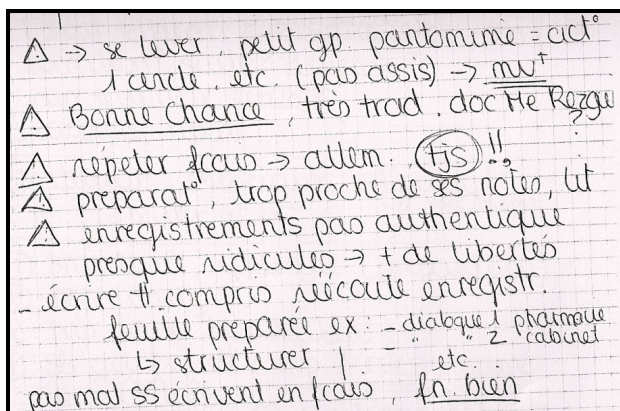 ⚠ → se lever, petit gp pantomime = act°
1 cercle, etc. (pas assis) → mvt
⚠ Bonne Chance, très trad. doc Me Rezgui
?
⚠ répeter fcais → allem. tjs !!
⚠ préparat°, trop proche de ses notes, lit
⚠ enregistrements pas authentique
presque ridicules → + de libertés
- écrire tt compris réécoute enregistr.
feuille préparée ex: - dialogue 1 pharmacie
↳ structurer - " " 2 cabinet
etc.
pas mal SS écrivent en fcais, fn. bien